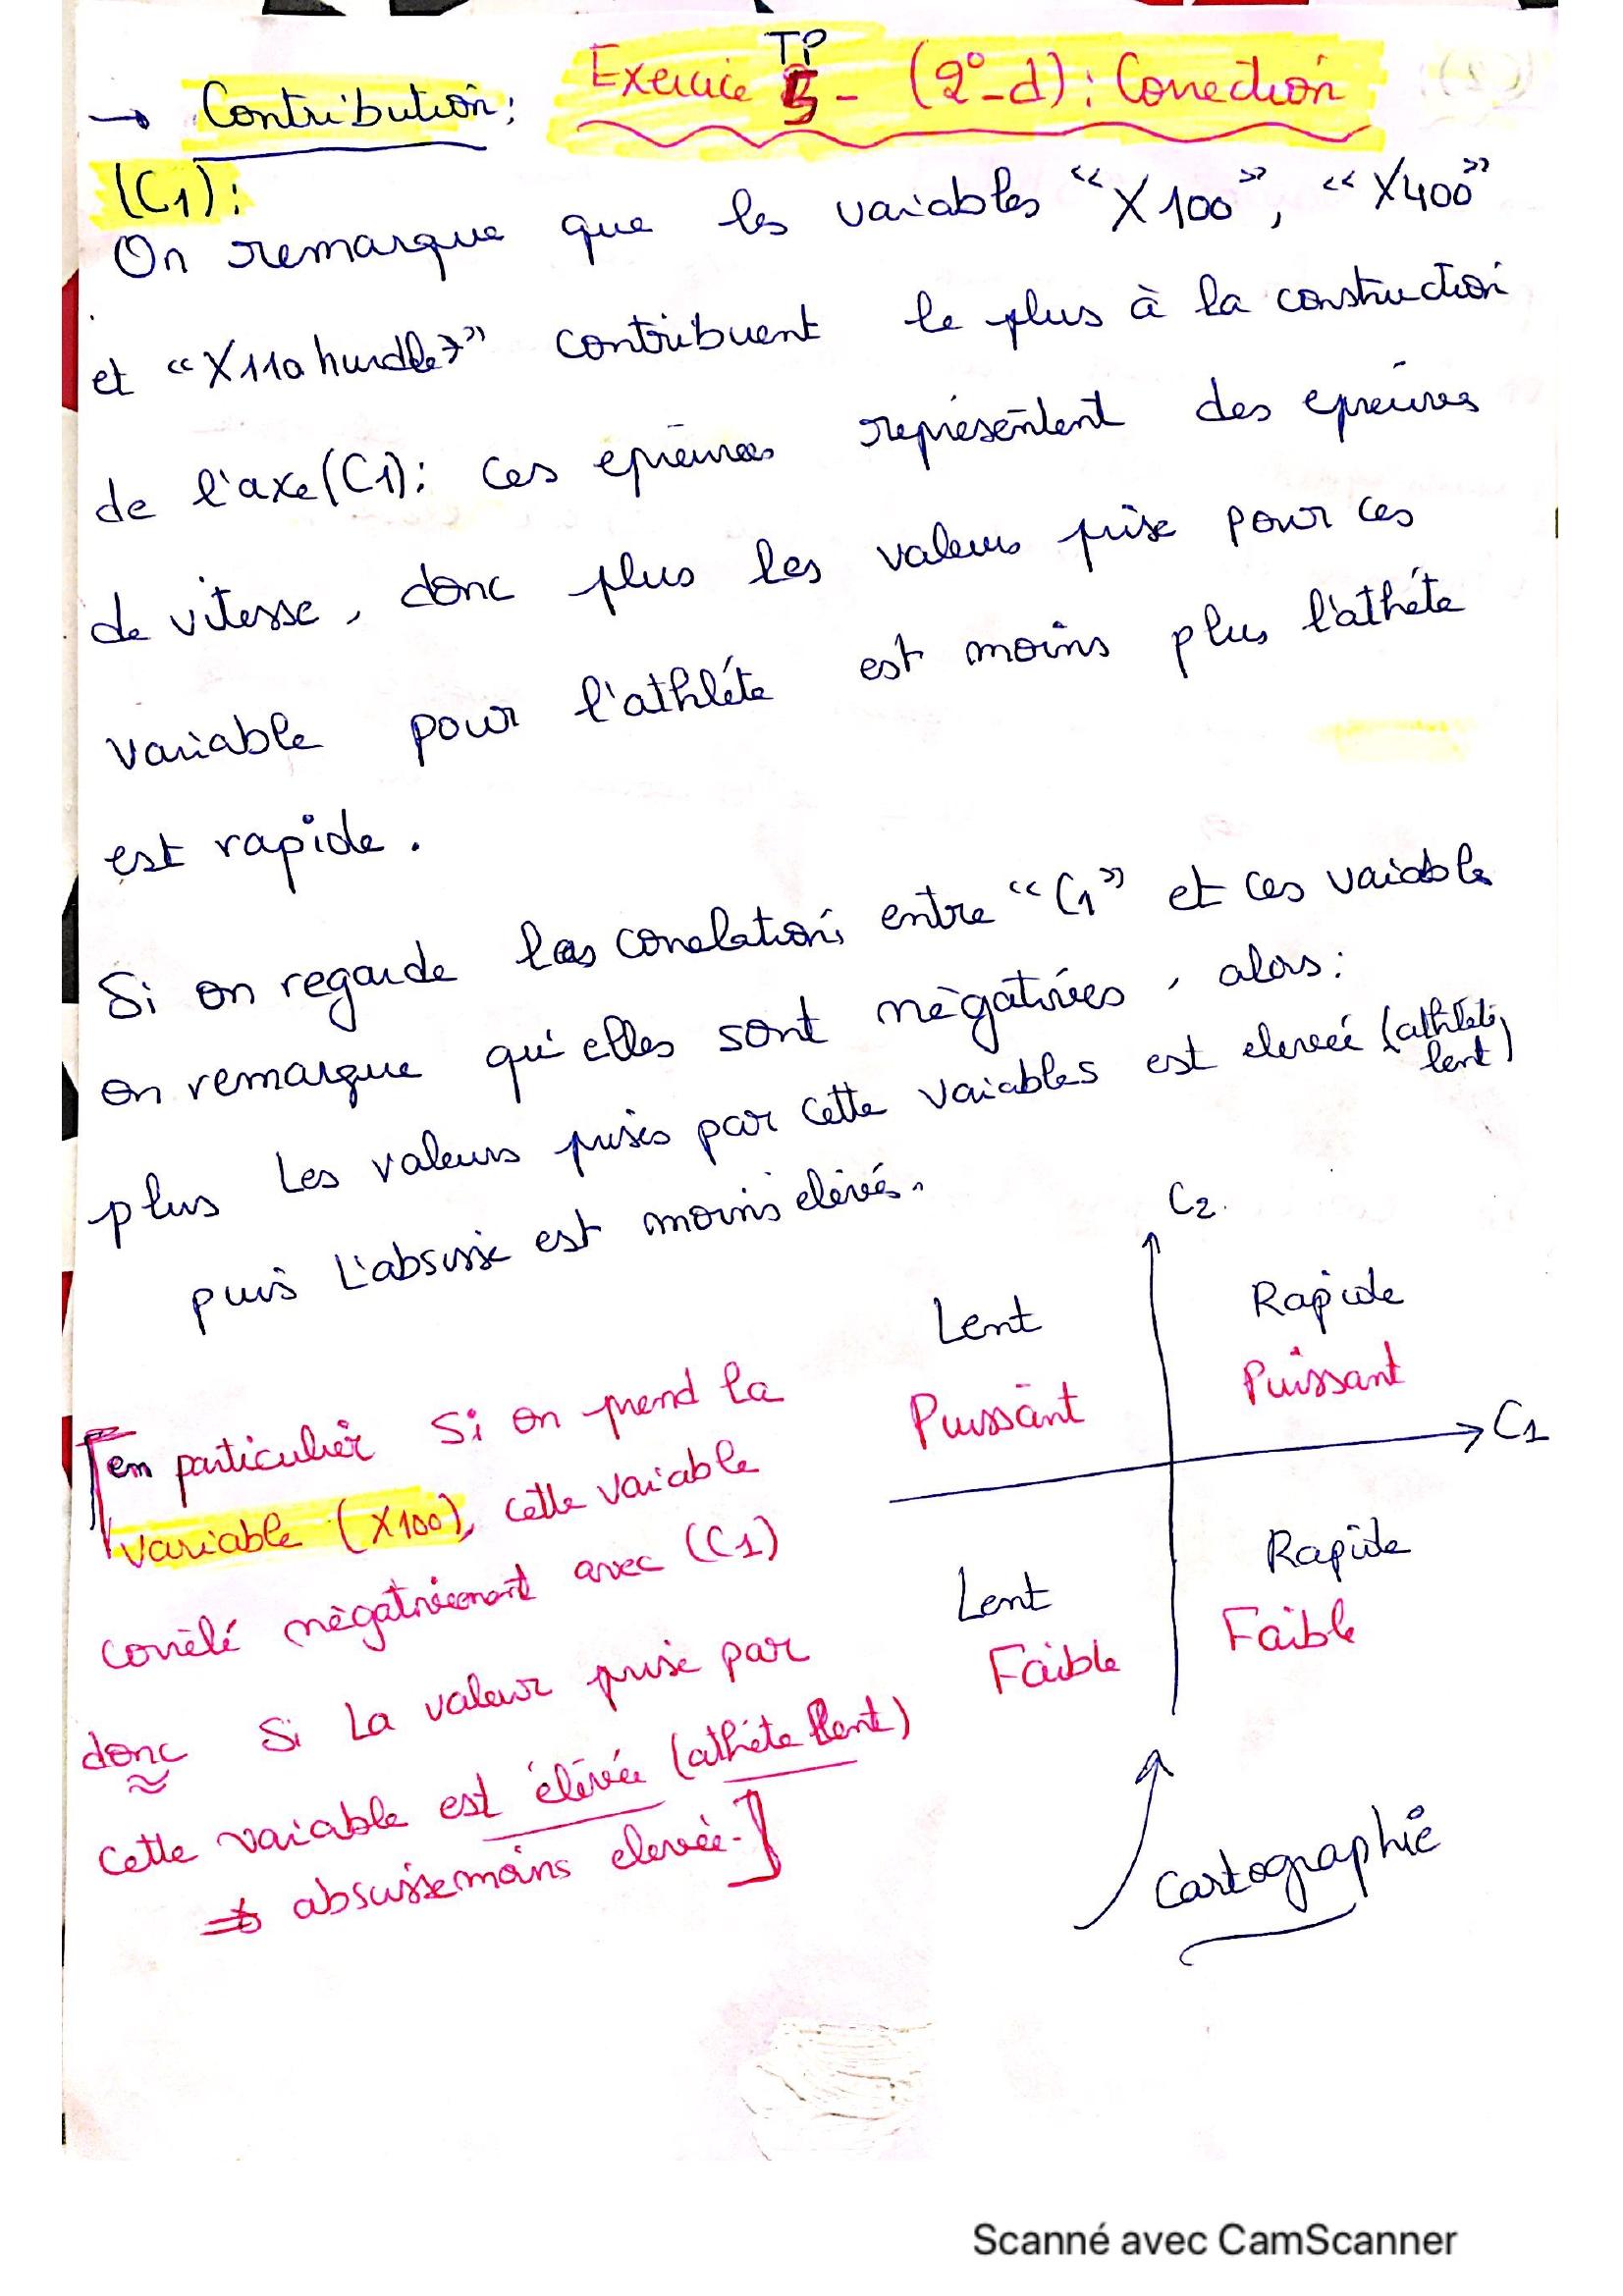 TP
Exercice 5 - (2°-d) : Correction
→ Contribution :
(C1) :
On remarque que les variables "X100", "X400"
et "X110 hurdle" contribuent le plus à la construction
de l'axe (C1) : ces epreuves représentent des epreuves
de vitesse, donc plus les valeurs prise pour ces
variable pour l'athléte est moins plus l'athéte
est rapide.
Si on regarde les correlations entre "C1" et ces variable
on remarque qu'elles sont négatives, alors :
plus Les valeurs prises par cette variables est elevée (athléte lent)
puis L'absisse est moins élevés.
C2
Lent
Rapide
Puissant
Puissant
C1
Lent
Rapide
Faible
Faible
Cartographie
[en particulier Si on prend la
variable (X100), cette variable
corrélé négativement avec (C1)
donc Si La valeur prise par
cette variable est élevée (athéte lent)
⇒ abscisse moins elevée.]
Scanné avec CamScanner